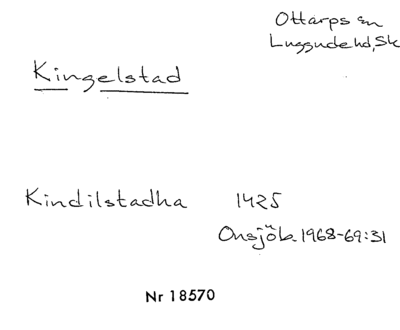 Ottarps sn
Luggude hd, Sk
Kingelstad
Kindilstadha 1425
Onsjöb. 1968-69:31
Nr 18570